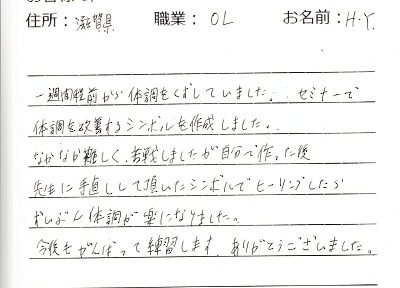 住所：滋賀県　職業：OL　お名前：H.Y.
一週間程前から体調をくずしていました。セミナーで
体調を改善するシンボルを作成しました。
なかなか難しく、苦戦しましたが自分で作った後
先生に手直しして頂いたシンボルでヒーリングしたら
ずいぶん体調が楽になりました。
今後もがんばって練習します。ありがとうございました。